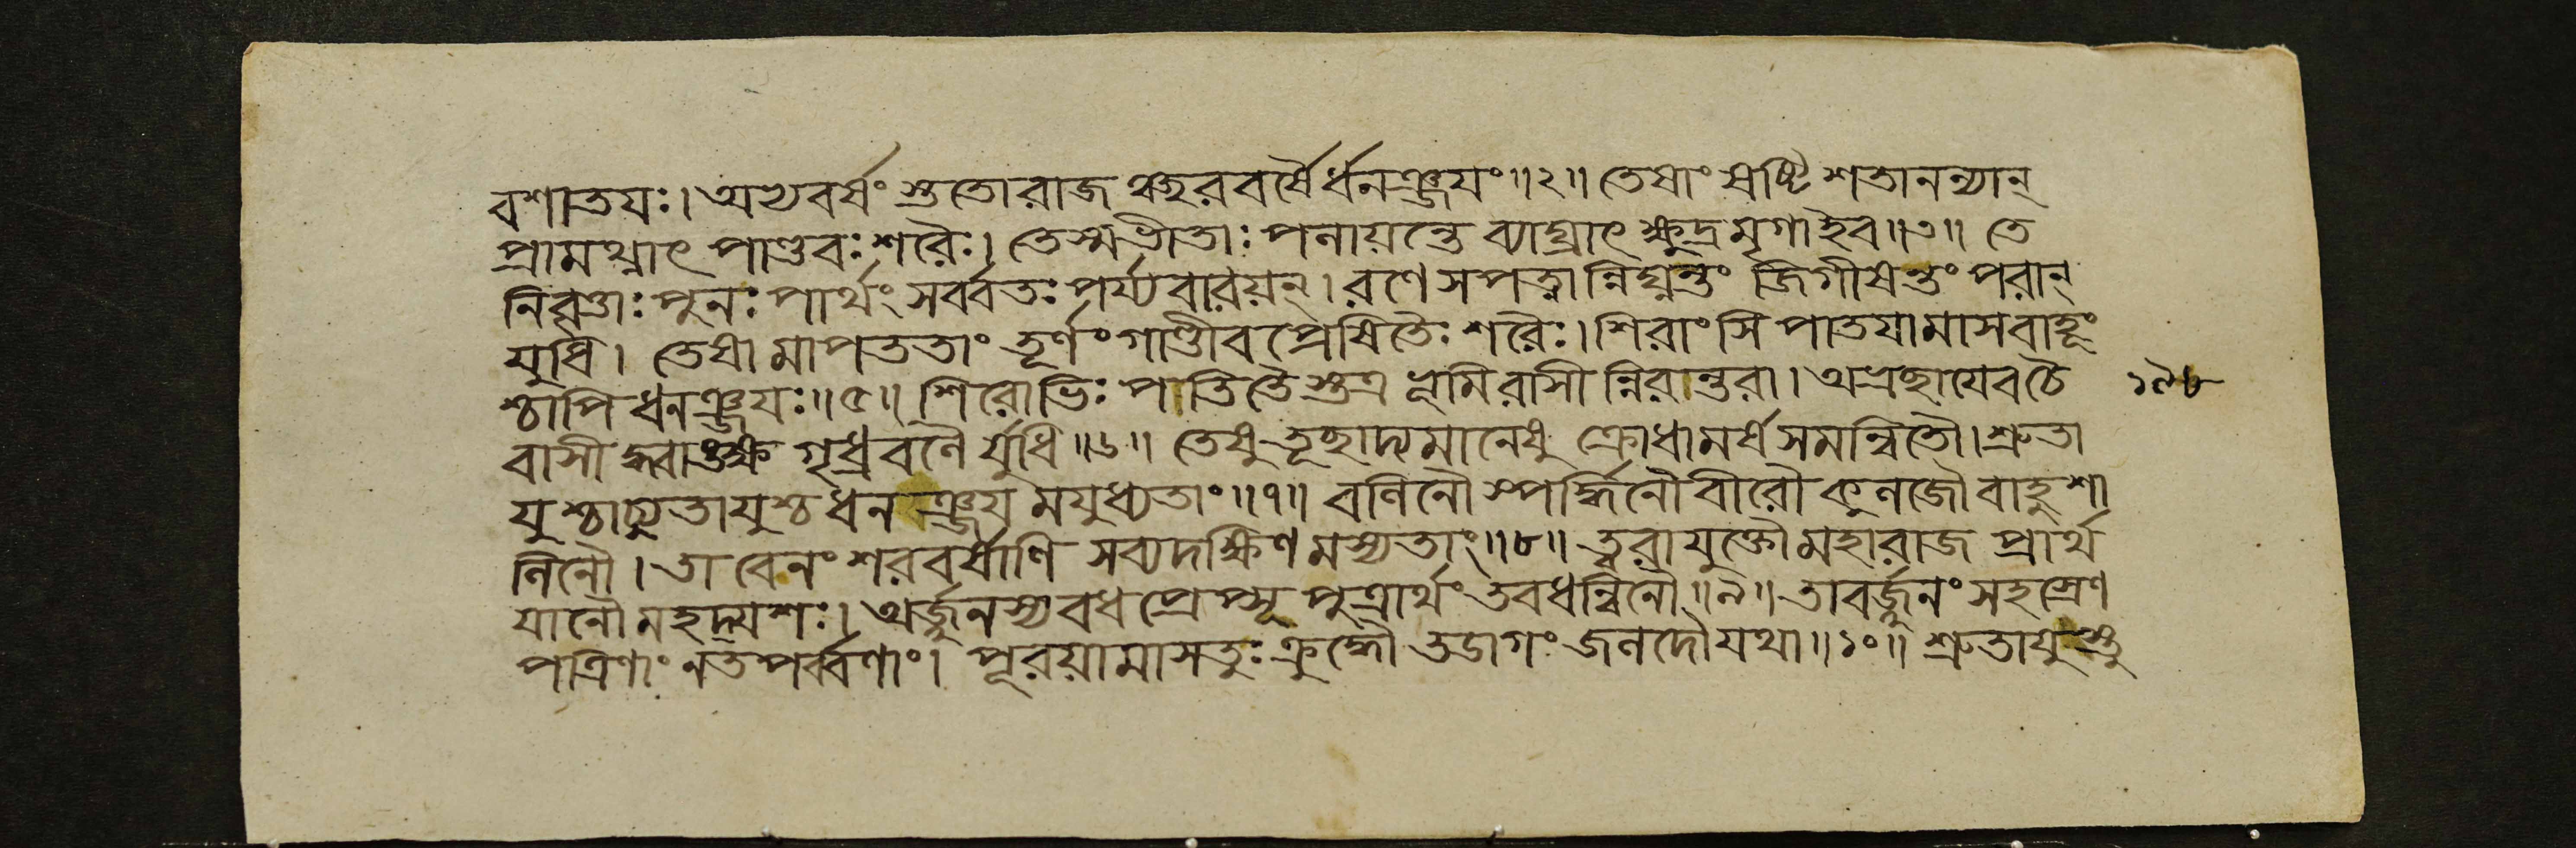 বশাতযঃ। অথবর্ষংস্ততোরাজঞ্চরবর্ষৈর্ধনঞ্জযং॥২॥ তেষাং ষষ্টি শতানন্যান্
প্রামথ্নাৎ পাণ্ডবঃ শরৈঃ। তেস্মভীতাঃ পলায়ন্তে ব্যাঘ্রাৎ ক্ষুদ্রমৃগাইব॥৩॥ তে
নিবৃত্তাঃ পুনঃ পার্থং সর্ব্বতঃ পর্য্যবারয়ন্। রণে সপত্নান্নিঘ্নন্তং জিগীষন্তং পরান্
যুধি। তেষামাপততাং তূর্ণং গাণ্ডীবপ্রেষিতৈঃ শরৈঃ। শিরাংসি পাতযামাসবাহূং
শ্চাপি ধনঞ্জযঃ॥৫॥ শিরোভিঃ পাতিতৈস্তত্র ভূমিরাসীন্নিরান্তরা। অভ্রছাযেবচৈ
বাসীদ্ধ্বাঙ্ক্ষ গৃধ্রবলৈর্যুধি॥৬॥ তেষুতূছাদ্যমানেষু ক্রোধামর্ষসমন্বিতৌ। শ্রুতা
যুশ্চাচ্যুতাযুশ্চ ধনঞ্জযমযুধ্যতাং॥৭॥ বলিনৌ স্পর্দ্ধিনৌ বীরৌ কুলজৌ বাহুশা
লিনৌ। তাবেনং শরবর্ষাণি সব্যদক্ষিণমস্যতাং॥৮॥ ত্বরাযুক্তৌ মহারাজ প্রার্থ
যানৌ মহদ্যশঃ। অর্জ্জুনস্যবধপ্রেপ্সূ পুত্রার্থং তবধন্বিনৌ॥৯॥ তাবর্জ্জুনং সহস্রেণ
পত্রিণাং নতপর্ব্বণাং। পূরয়ামাসতুঃ ক্রুদ্ধৌ তডাগং জলদৌযথা॥১০॥ শ্রুতাযুস্তু
১৯৮